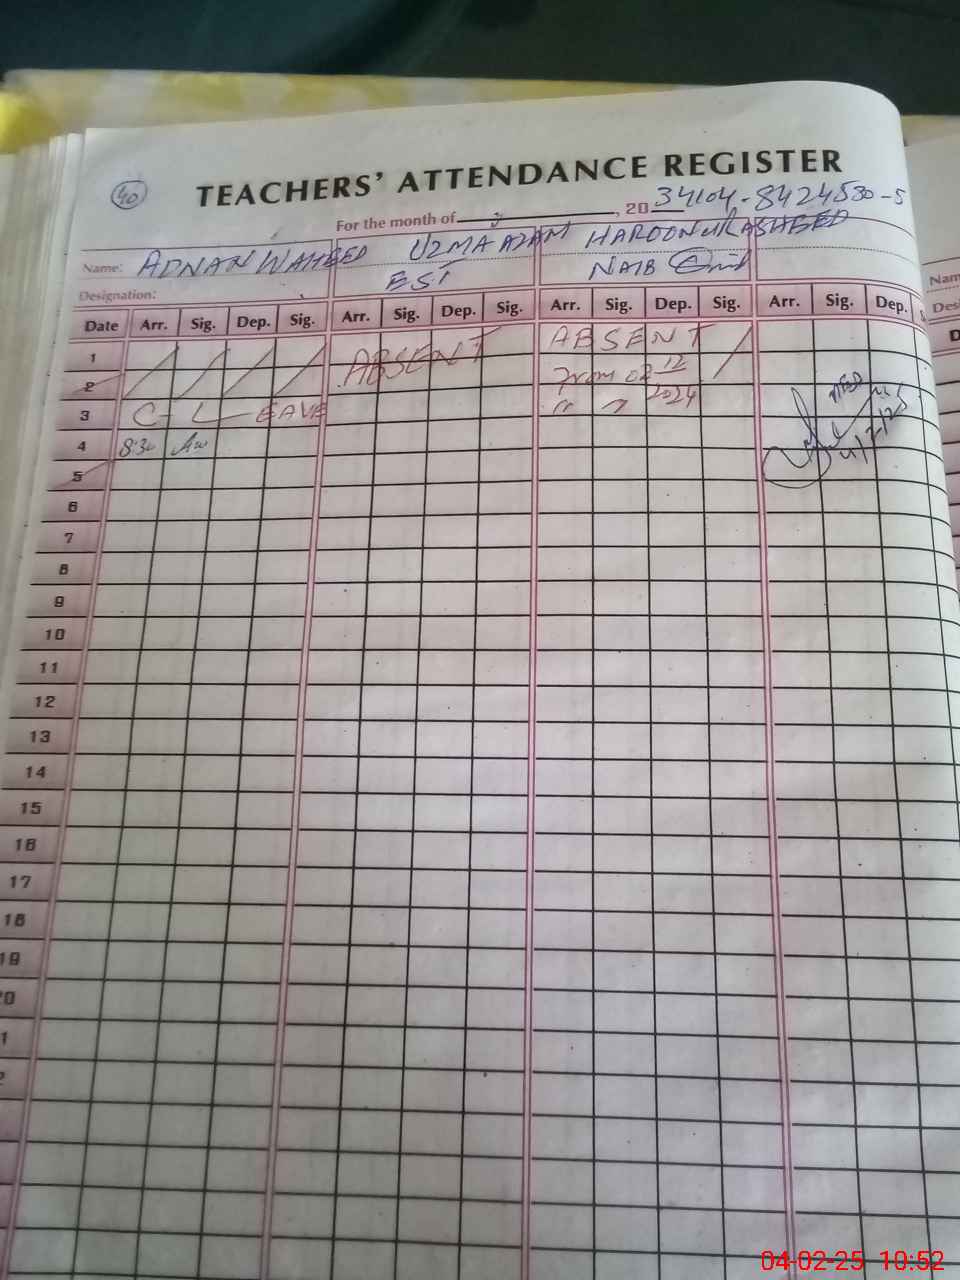 40
TEACHERS' ATTENDANCE REGISTER
For the month of , 20 34104-8424530-5
Name: ADNAN WAHEED UZMA AZAM HAROON UR RASHEED
Designation: EST NAIB
Date Arr. Sig. Dep. Sig. Arr. Sig. Dep. Sig. Arr. Sig. Dep. Sig. Arr. Sig. Dep.
1 ABSENT ABSENT
2 From 02 12 2024
3 C- LEAVE " "
4 8:30
5
6
7
8
9
10
11
12
13
14
15
16
17
18
19
20
1
2
Nam
Des
D
04-02-25 10:52